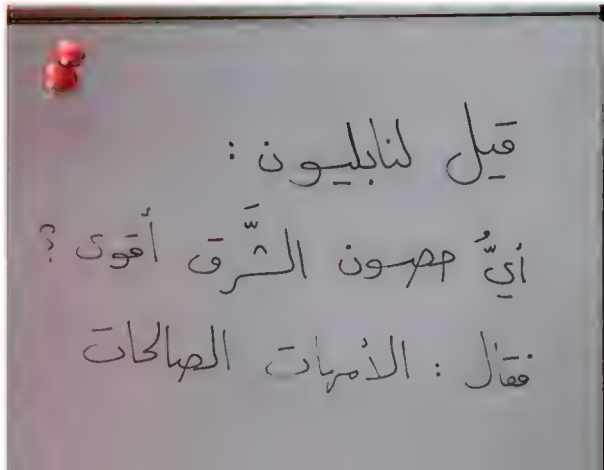 قيل لنابليون :
أيُّ حصون الشَّرق أقوى ؟
فقال : الأمهات الصالحات